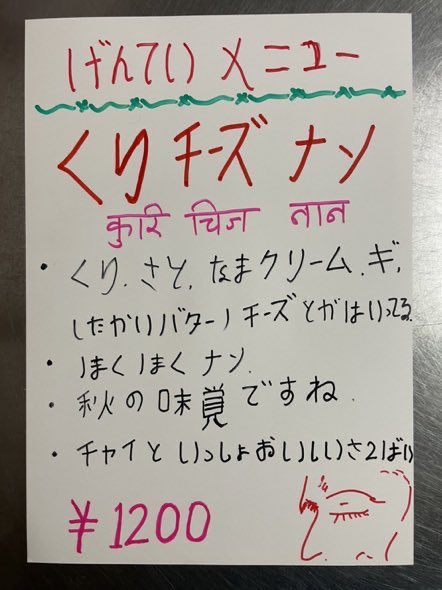 げんてい メニュー
くり チーズ ナン
कुरि चिज नान
・くり、さと、なまクリーム、ギ、
したかいバターノチーズとかはいってる
・ほくほくナン、
・秋の味覚ですね、
・チャイといっしょおいしいさ2ばい
¥1200